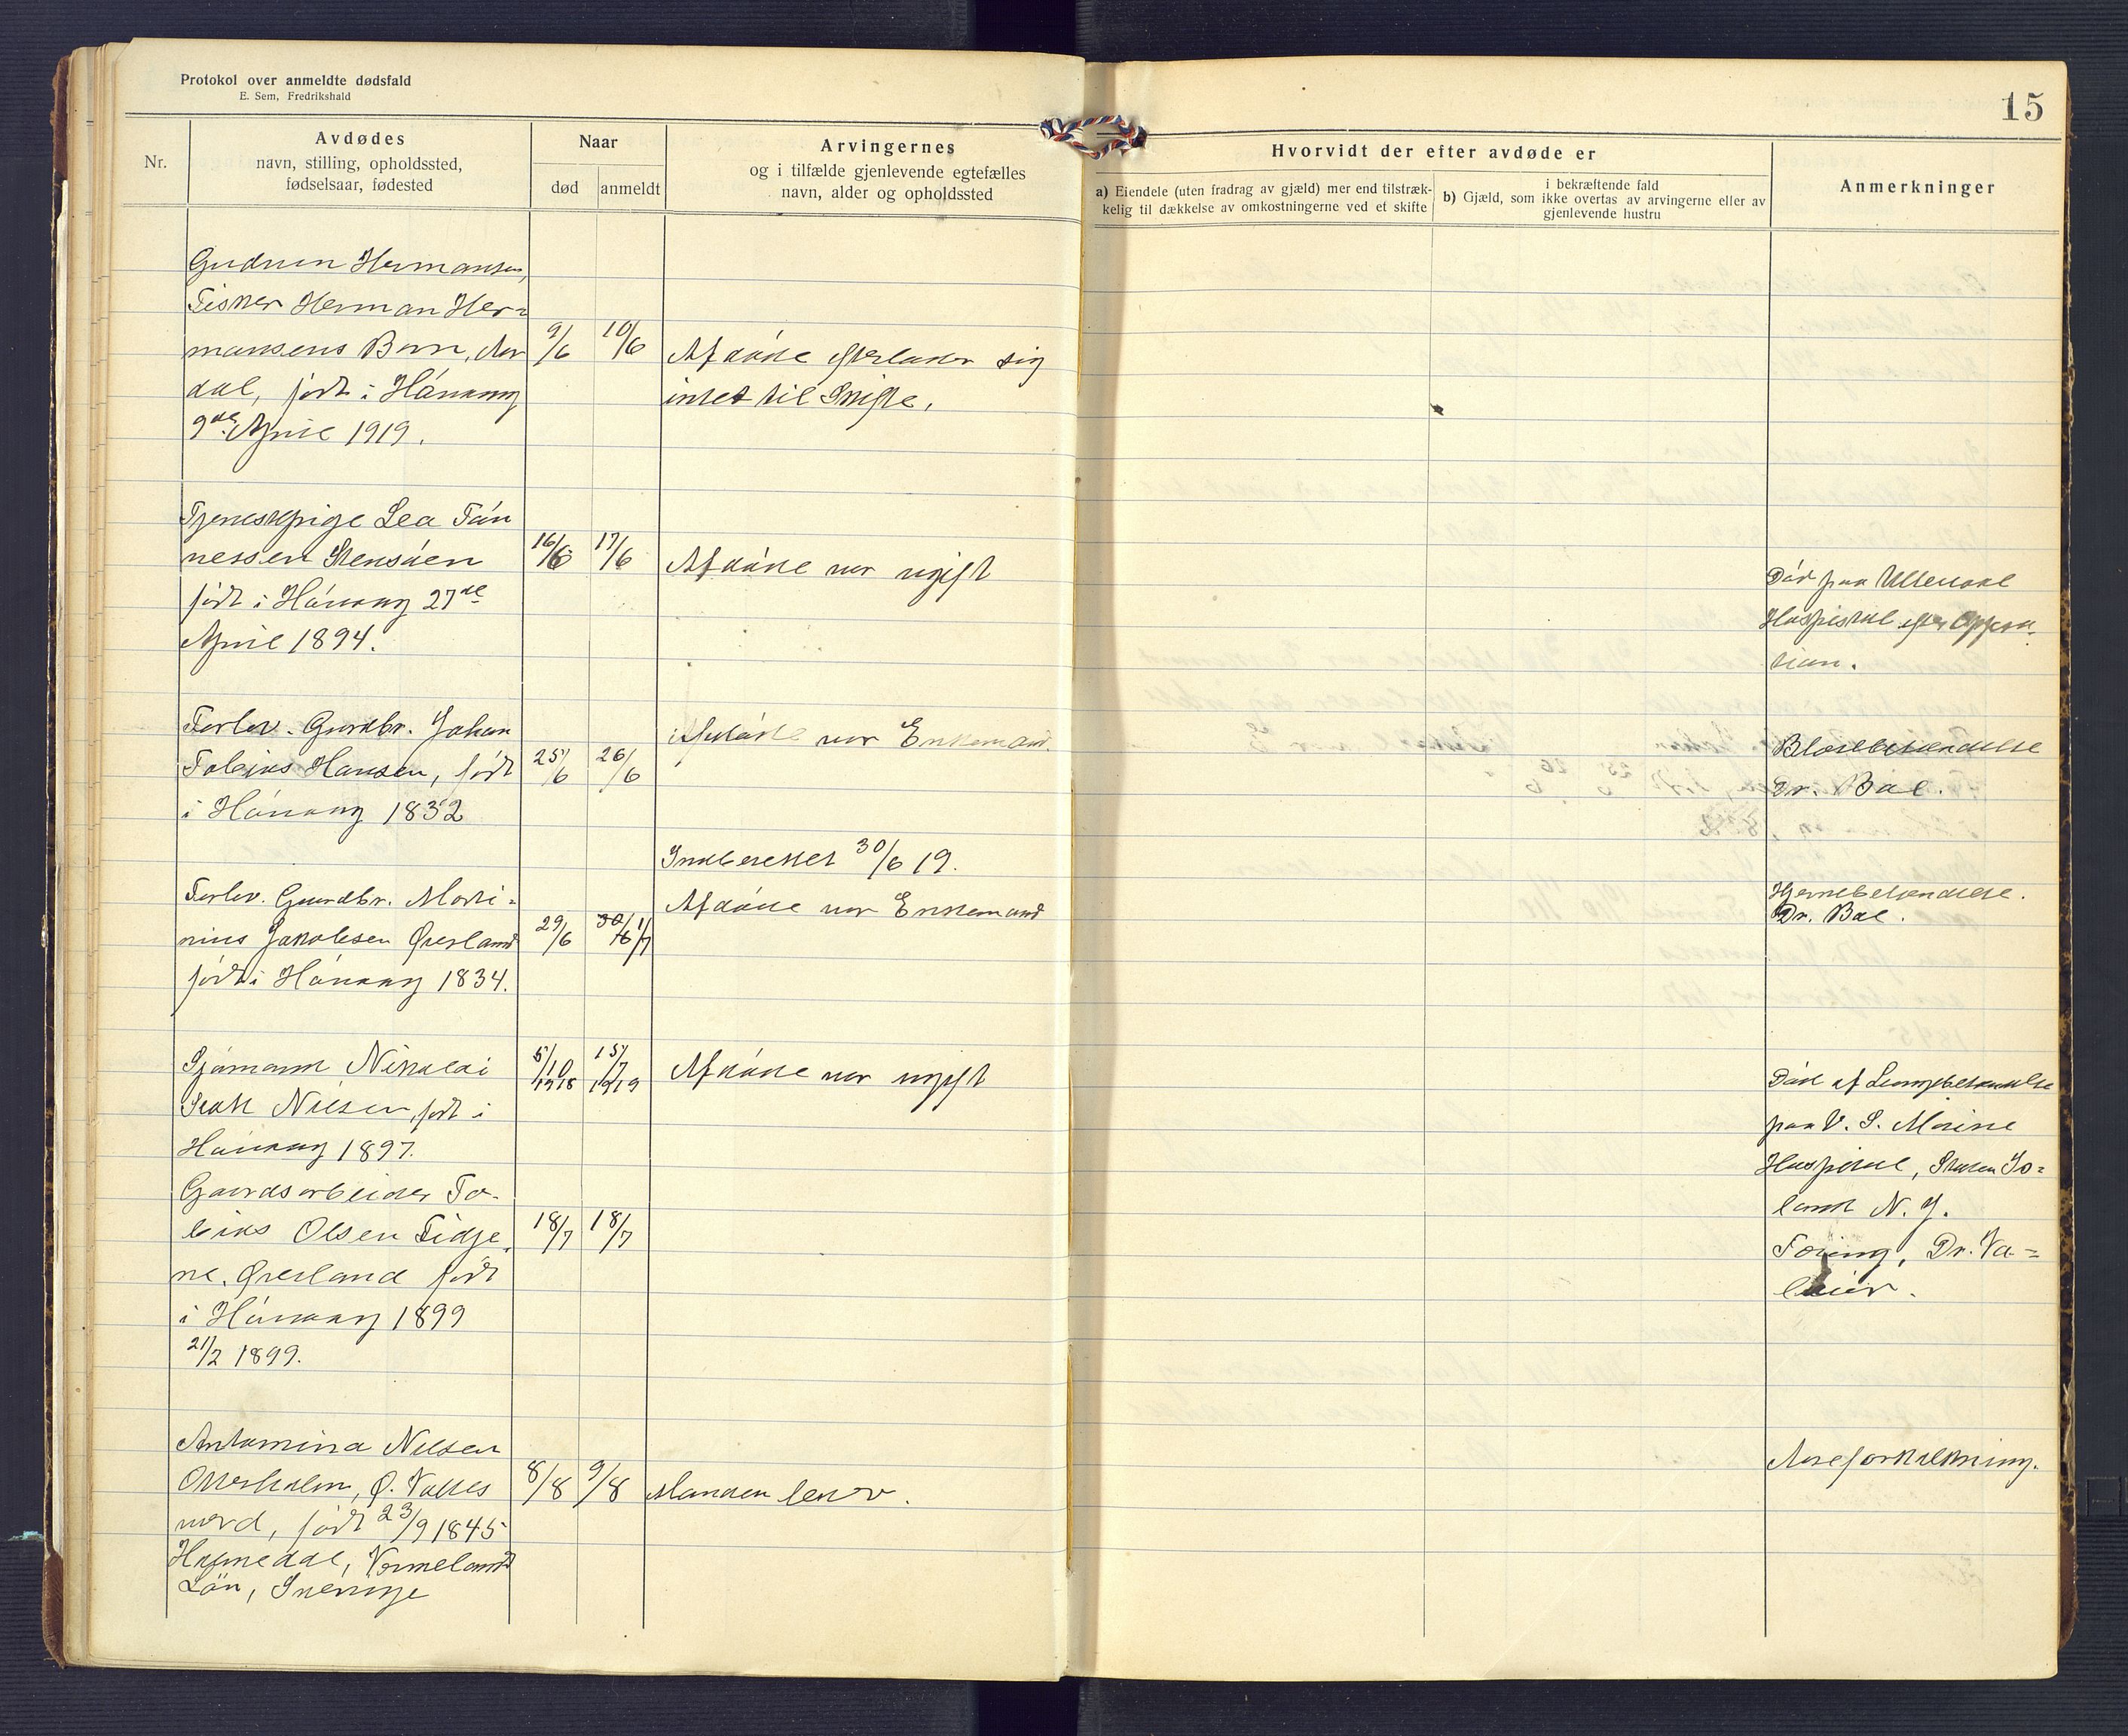 Protokol over anmeldte dødsfald
E. Sem, Fredrikshald
15
Nr.
Avdødes
navn, stilling, opholdssted,
fødselsaar, fødested
Naar
død
anmeldt
Arvingernes
og i tilfælde gjenlevende egtefælles
navn, alder og opholdssted
Hvorvidt der efter avdøde er
a) Eiendele (uten fradrag av gjæld) mer end tilstræk-
kelig til dækkelse av omkostningerne ved et skifte
i bekræftende fald
b) Gjæld, som ikke overtas av arvingerne eller av
gjenlevende hustru
Anmerkninger
Gudrun Hermansen,
Fisker Herman Her=
mansens Barn,
dal, født i Hánang
9de April 1919.
9/6
10/6
Afdøde efterlader sig
intet til Skifte.
Tjenestepige Lea Tøn
nessen Stensøen
født i Hánang 27de
April 1894.
16/6
17/6
Afdøde var ugift
Død paa Ullevaal
Hospital efter Oppera-
tion.
Forlov. Gaardbr. Johan
Tobias Hansen, født
i Hánang 1832
25/6
26/6
Afdøde var Enkemand.
Blærebetændelse
Dr. Bal.
Indberettet 30/6 19.
Forlov. Gaardbr. Marti=
nius Jakobsen Øresland
født i Hánang 1834.
29/6
30/6 1/7
Afdøde var Enkemand
Hjernebetændelse.
Dr. Bal.
Sjømand Nikolai
Nilsen, født i
Hánang 1897.
5/10 1918
15/7 1919
Afdøde var ugift
Død af Lungebetændelse
paa U. S. Marine
Hospital, Staten Is=
land N. Y.
Gaardsarbeider To-
bias Olsen Tidje
ne, Øresland født
i Hánang 1899
21/2 1899.
18/7
18/7
Tæring, Dr. Va=
leur.
Antomina Nilsen
Otterholm, Ø. Valles
værd, født 23/9 1845
Vermelands
Län, Sverrige
8/8
9/8
Manden lever.
Aareforkalkning.